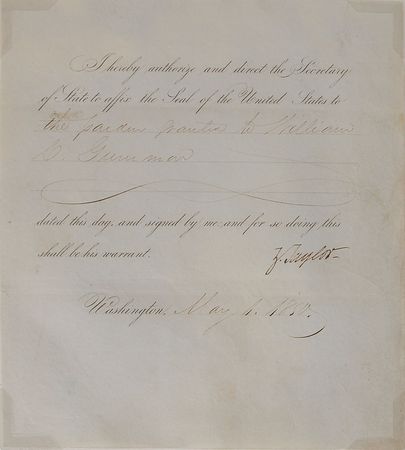 I hereby authorize and direct the Secretary
of State to affix the Seal of the United States to
the pardon granted to William
dated this day, and signed by me and for so doing this
shall be his warrant.
Z. Taylor
Washington, May 1. 1850.